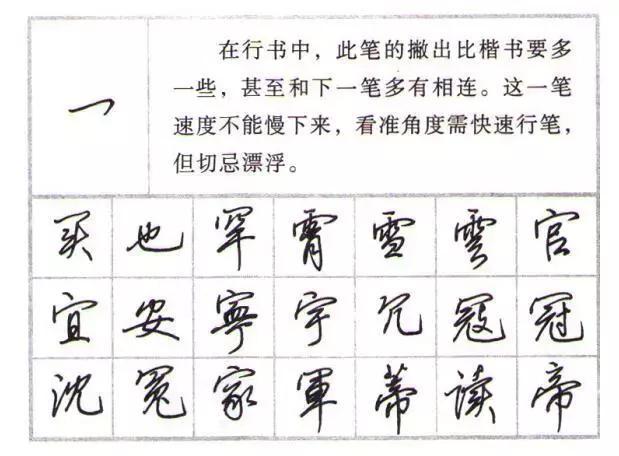 乛
在行书中，此笔的撇出比楷书要多
一些，甚至和下一笔多有相连。这一笔
速度不能慢下来，看准角度需快速行笔，
但切忌漂浮。
买 也 罕 霄 雪 雲 官
宜 安 寧 宇 冗 寇 冠
沈 冤 家 軍 蒂 读 帝